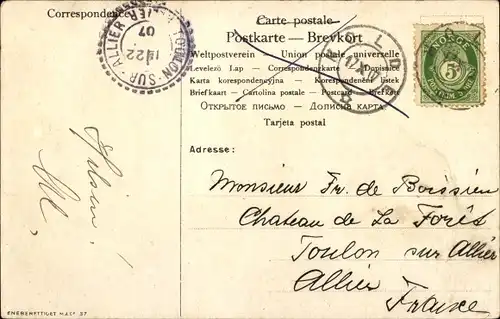 Correspondence
Carte postale
Postkarte — Brevkort
Weltpostverein — Union postale universelle
Levelező Lap — Correspondenzkarte — Dopisnice
Karta korespondencyjna — Korespondenční lístek
Briefkaart — Cartolina postale — Postcard — Brefkort
ОТКРЫТОЕ ПИСЬМО — ДОПИСНА КАРТА
Tarjeta postal
TOULON-SUR-ALLIER
ALLIER
22
07
MOLDE
17 X 07
NORGE
5
Adresse:
Monsieur Fr. de Boissieu
Chateau de La Forêt
Toulon sur Allier
Allier
France
Hilsen!
ENEBERETTIGET M.&Co. 37